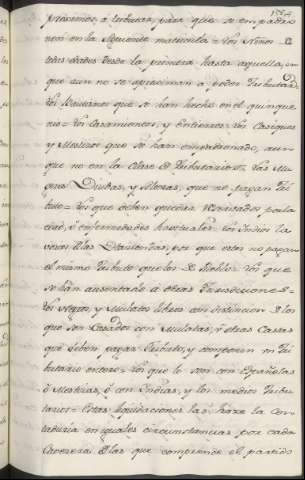 proximos, a tributar, para que se empadro
nen en la siguiente matricula = los Niños de
otras edades desde la primera hasta aquella, en
que aun no se aproximan a poder tributar =
los Bautismos que se han hecho en el quinque
nio = los Casamientos, y Entierros = los Caciques
y que se han empadronado, aun
que no en la clase de tributarios = las Mu
geres Viudas, y Solteras, que no pagan tri
buto = los que deben quedar reservados por la e
dad, ó enfermedades havituales = los Indios la
vorios de las Haciendas, por que estos no pagan
el mismo tributo que los de Pueblo = los que
se han ausentado á otras Jurisdicciones =
los Negros, y Mulatos libres con distincion de los
que son Casados con Mulatas, ú otras Castas
que deben pagar tributo, y componen un Tri
butario entero = los que lo son con Españolas
ó Mestizas, ó con Indias, y los medios Tribu
tarios = Estas liquidaciones las hace la Con
taduria en iguales circunstancias por cada
Cavecera de las que comprende el partido